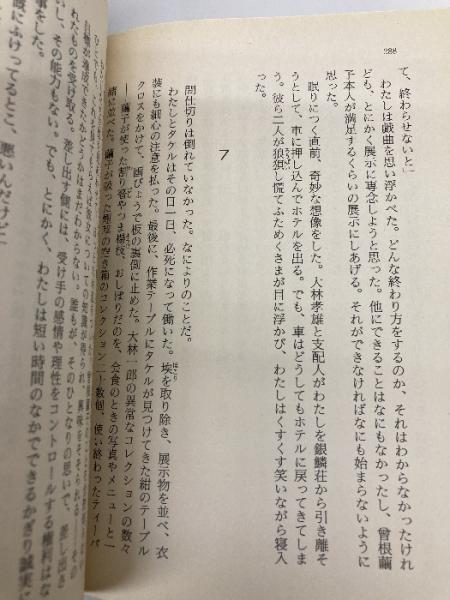 288
て、終わらせないと――
わたしは戯曲を思い浮かべた。どんな終わり方をするのか、それはわからなかったけれ
ども、とにかく展示に専念しようと思った。他にできることはなにもなかったし、曾根繭
子本人が満足するくらいの展示にしあげる。それができなければなにも始まらないように
思った。
眠りにつく直前、奇妙な想像をした。大林孝雄と支配人がわたしを銀鱗荘から引き離そ
うとして、車に押し込んでホテルを出る。でも、車はどうしてもホテルに戻ってきてしま
う。彼ら二人が狼狽し慌てふためくさまが目に浮かび、わたしはくすくす笑いながら寝入
った。
7
間仕切りは倒れていなかった。なによりのことだ。
わたしとタケルはその日一日、必死になって働いた。埃を取り除き、展示物を並べ、衣
装にも細心の注意を払った。最後に、作業テーブルにタケルが見つけてきた紺のテーブル
クロスをかけて、画びょうで板の裏側に止めた。大林一郎の異常なコレクションの数々
――繭子が使った割り箸やつま楊枝、おしぼりだのを、会食のときの写真やメニューと一
緒に並べた。繭子が吸った煙草の空き箱のコレクション二十数個、使い終わったティーバ
れたものを受け取る。差し出す側には、受け手の感情や理性をコントロールする権利はな
いし、その能力もない。でも、とにかく、わたしは短い時間のなかでできるかぎり誠実に
事をした。